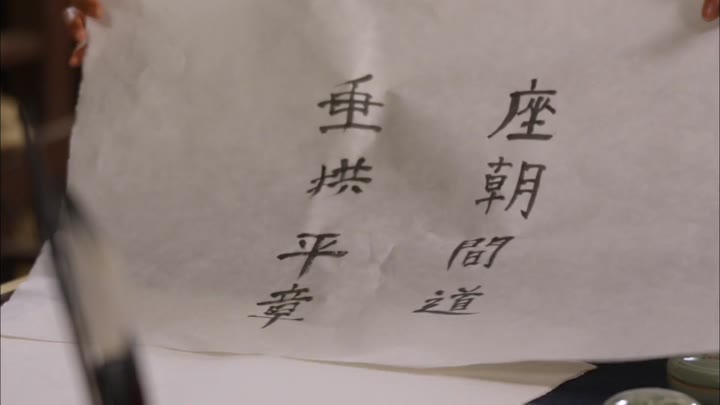 座朝間道
垂拱平章